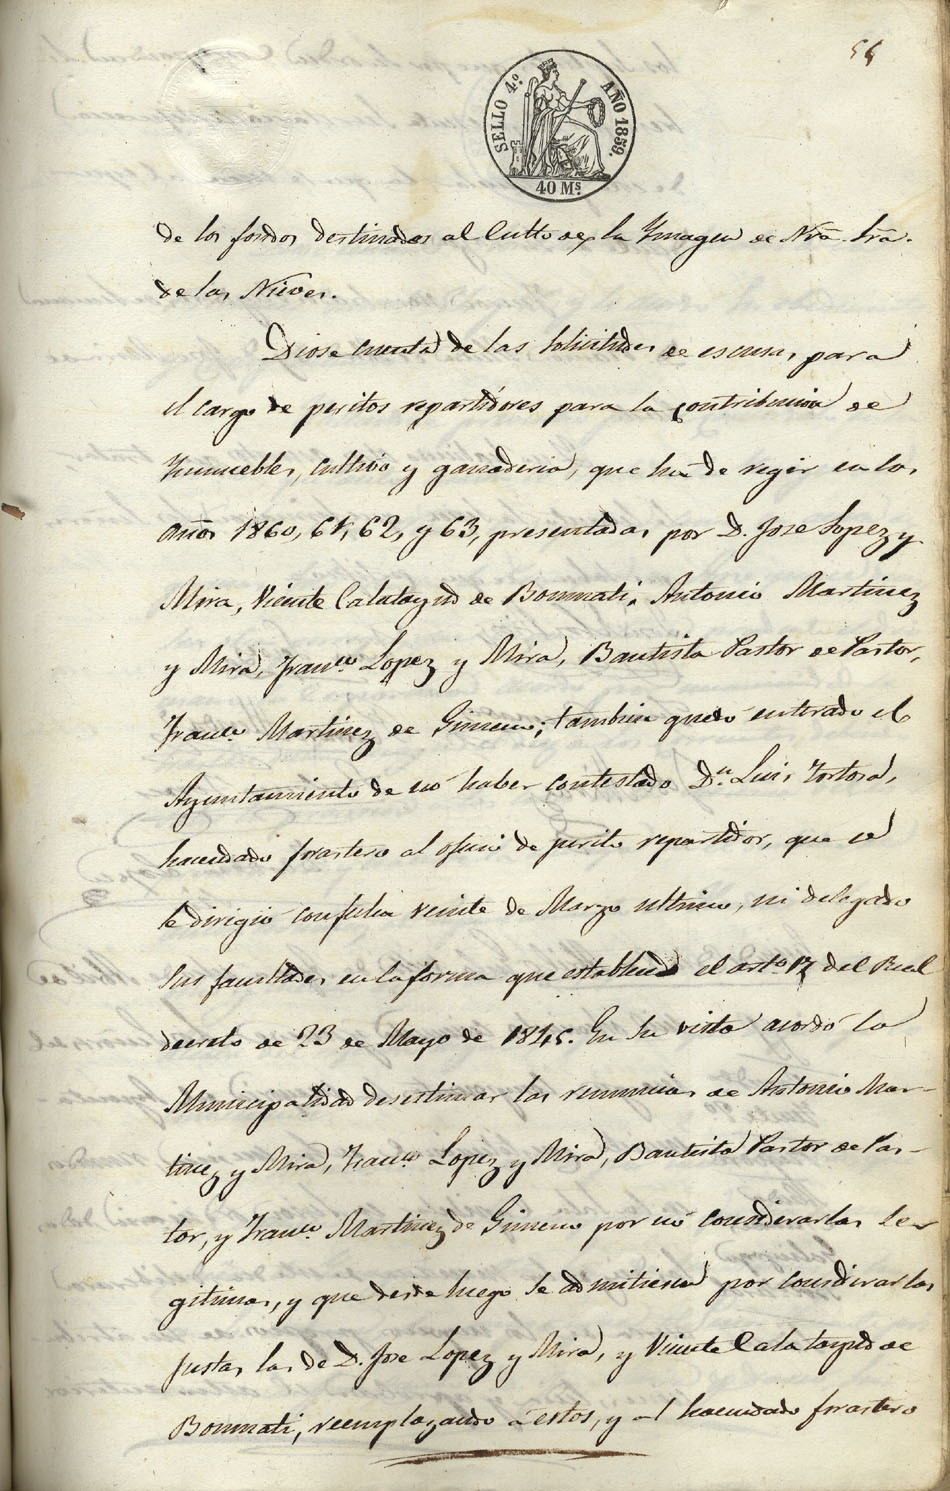 54
SELLO 4º AÑO 1859.
40 Ms.
de los fondos destinados al Culto de la Ymagen de Nrã. Srã.
de las Nieves.
Diose cuenta de las solicitudes de escusas para
el cargo de peritos repartidores para la contribucion de
Ynmuebles, cultivo y ganaderia, que ha de regir en los
años 1860, 61, 62, y 63, presentadas por D. Jose Lopez y
Mira, Vicente Calatayud de Bonmati, Antonio Martinez
y Mira, Franco. Lopez y Mira, Bautista Pastor de Pastor,
Franco. Martinez de Gimeno; tambien quedó enterado el
Ayuntamiento de no haber contestado Dn. Luis Tortosa,
hacendado forastero al oficio de perito repartidor, que se
le dirigió con fecha veinte de Marzo ultimo, ni delegado
sus facultades en la forma que establece el arto. 17 del Real
decreto de 23 de Mayo de 1845. En su vista acordó la
Municipalidad desestimar las renuncias de Antonio Mar-
tinez y Mira, Franco. Lopez y Mira, Bautista Pastor de Pas-
tor, y Franco. Martinez de Gimeno por no considerarlas le-
gitimas, y que desde luego se admitiesen por considerarlas
justas las de D. Jose Lopez y Mira, y Vicente Calatayud de
Bonmati, reemplazando á estos, y al hacendado forastero